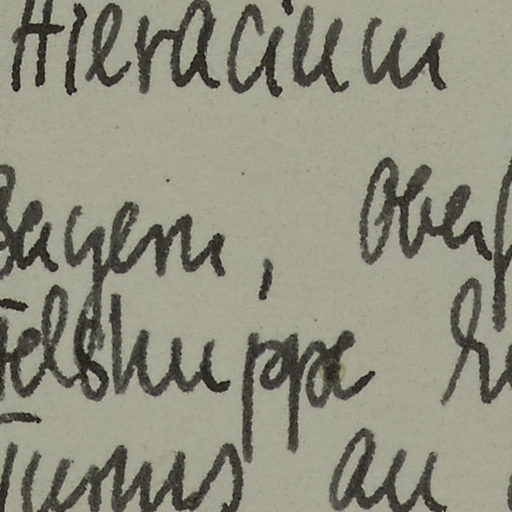 Hieracium
Bayern, Oberf
Felskuppe
Turms an